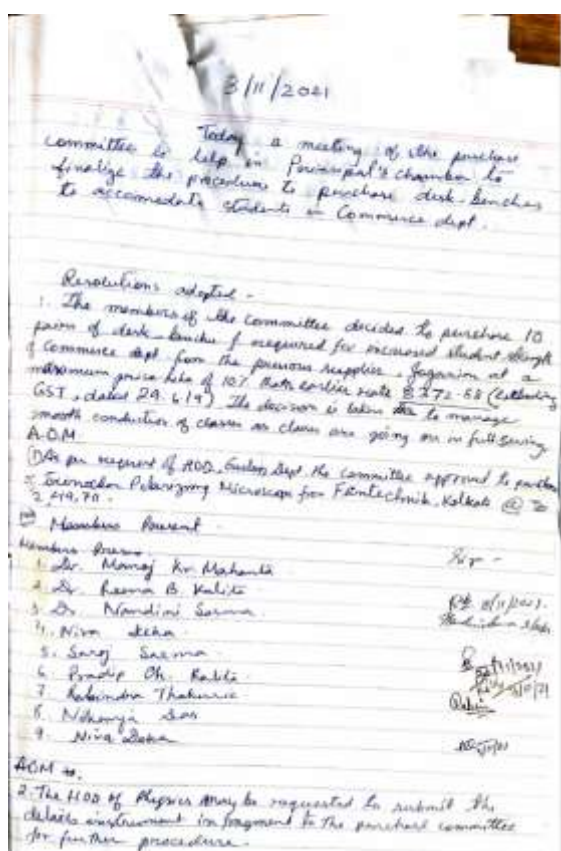 3/11/2021
Today a meeting of the purchase
committee is help in Principal's chamber to
finalize the procedure to purchase desk-benches
to accomedate students in Commerce dept.
Resolutions adopted -
1. The members of the committee decided to purchase 10
pairs of desk-benches required for increased student strength
of Commerce dept from the previous supplier, at a
maximum price hike of 10% than earlier rate 8272.58 (Excluding
GST, dated 29.6.19) The decision is taken to manage
smooth conduction of classes as classes are going on in full swing
A.O.M
As per request of HOD, Dept. the committee approved to purchase
Polarizing Microscope from Kolkata @
2,49,70.
Members Present.
Members Present
1. Dr. Manoj Kr Mahanta
2. Dr. Reema B. Kalita
3. Dr. Nandini Sarma
4. Niva Deka
5. Saroj Sarma
6. Pradip Ch. Kalita
7. Rabindra Thakuria
8. Das
9. Niva Deka
AOM
2. The HOD of Physics may be requested to submit the
details instrument to the purchase committee
for further procedure.